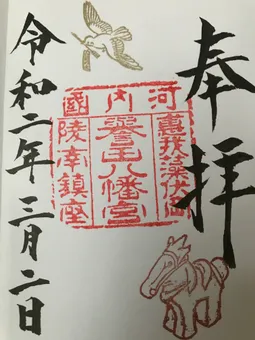 奉拝
河内國
惠我藻伏崗
譽田八幡宮
陵南鎮座
令和二年三月二日